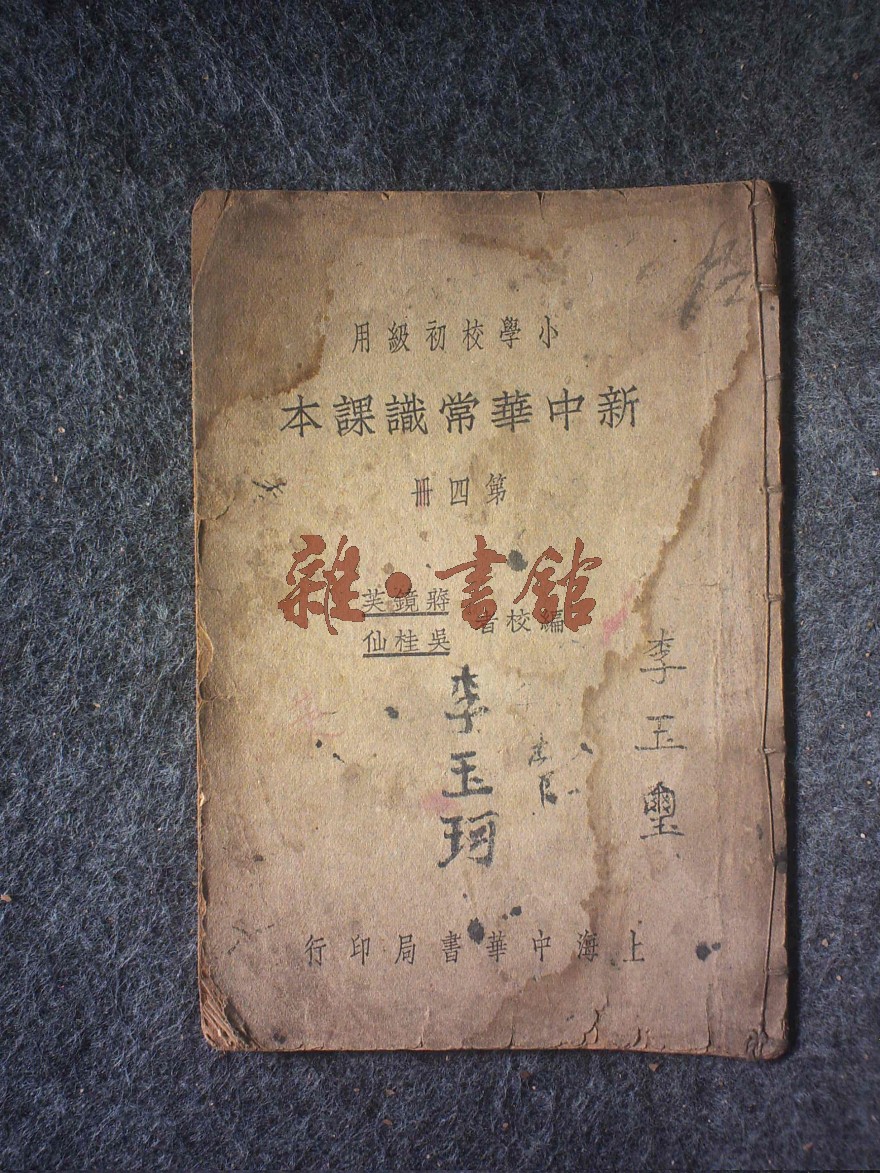 小學校初級用
新中華常識課本
第四冊
編校者
蔣鏡芙
吳桂仙
雜·書館
李玉璽
李玉珂
上海中華書局印行